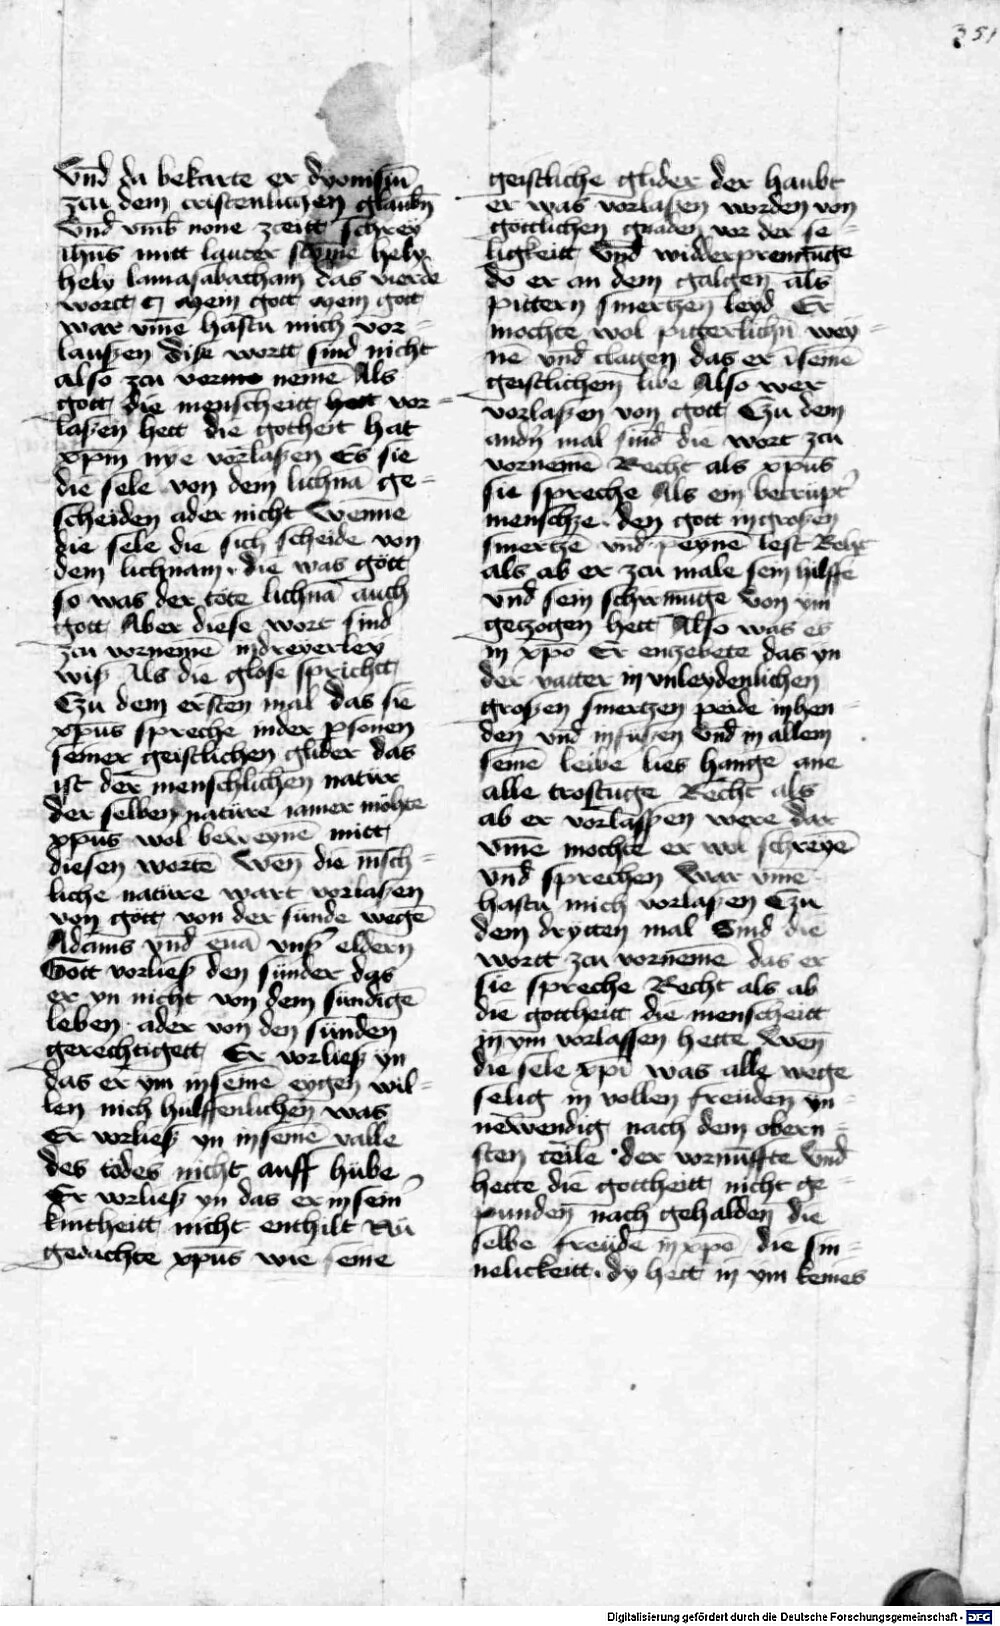 351
Vnd da bekarte er dyonisiū
zcu dem cristenlichen glaubn̄
Vnd vmb none zceitt schrey
ihūs mitt lauter styme hely
hely lamasabathani das vierde
wortt mein gott mein gott
war vm̄e hastu mich vor=
laußen dise wortt sind nicht
also zcu vorno nemē Als
gott die menscheitt hett vor=
laßen hett die gotheit hat
xp̄m nye vorlaßen Es sie
die sele von dem lichnā ge=
scheiden ader nicht Wenne
die sele die sich scheide von
dem lichnam · die was gött
so was der töte lichnā auch
gott Aber diese wort sind
zcu vornemē in dreyerley
wiß Als die glose sprichtt
Czu dem ersten mal das sie
xp̄us spreche in der p̄sonen
seiner geistlichen glider das
ist der menschlichen natur
der selben natüre iamer möhte
xp̄us wol beweynē mitt
diesen wortē Wen̄ die mēsch=
liche natüre wart vorlaßen
von gött von der sünde wegē
Adams vnd euā vnß eldern
Gott vorließ den sünder das
er yn nicht von dem sündigē
leben · ader von den sünden
gerechtigett Er vorließ yn
das er ym in seinē eygen wil=
len nich hülffenlichen was
Er vorließ yn in seinē valle
des tödes nicht auff hübe
Er vorließ yn das er in sein
kintheitt nicht enthilt Nü
gedachte xp̄us wie seine
geistliche glider der haubt
er was vorlaßen worden von
göttlichen gnaden vor der se=
ligkeitt Vnd widderpremtuge
do er an dem galgen als
pittern smertzen leyd Er
mochte wol pitterlichn̄ wey=
nē vnd clagen das er i seinē
geistlichem libe Also wer
vorlaßen von gott Czu dem
andn̄ mal sind die wort zcu
vornemē Recht als xp̄us
sie spreche Als ein betrüpt
mensche · den gott in großen
smertzē vnd peynē lest Recht
als ab er zcu male sein hilffe
vnd sein schirmuge von ym
geczogen hett Also was es
in xp̄o Er entzebete das yn
der vatter in vnleydenlichen
großen smertzen peide in hen=
den vnd in fußen Vnd in allem
seinē leibe lies hangē ane
alle trostuge Recht als
ab er vorlassen were dar
vm̄e mochte er wol schreyē
vnd sprechen War vm̄e
hastu mich vorlaßen Czu
dem drytten mal Sind die
wortt zcu vornemē das er
sie spreche Recht als ab
die gottheitt die menscheitt
in ym vorlassen hette Wen̄
die sele xp̄i was alle wege
selig in vollen freüden yn=
newendig nach dem obern=
sten teile · der vornüffte Vnd
hette die gottheitt nicht ge=
punden nach gehalden die
selbe freüde in xp̄o die sin=
nelickeitt · dy hett in ym keines
Digitalisierung gefördert durch die Deutsche Forschungsgemeinschaft - DFG